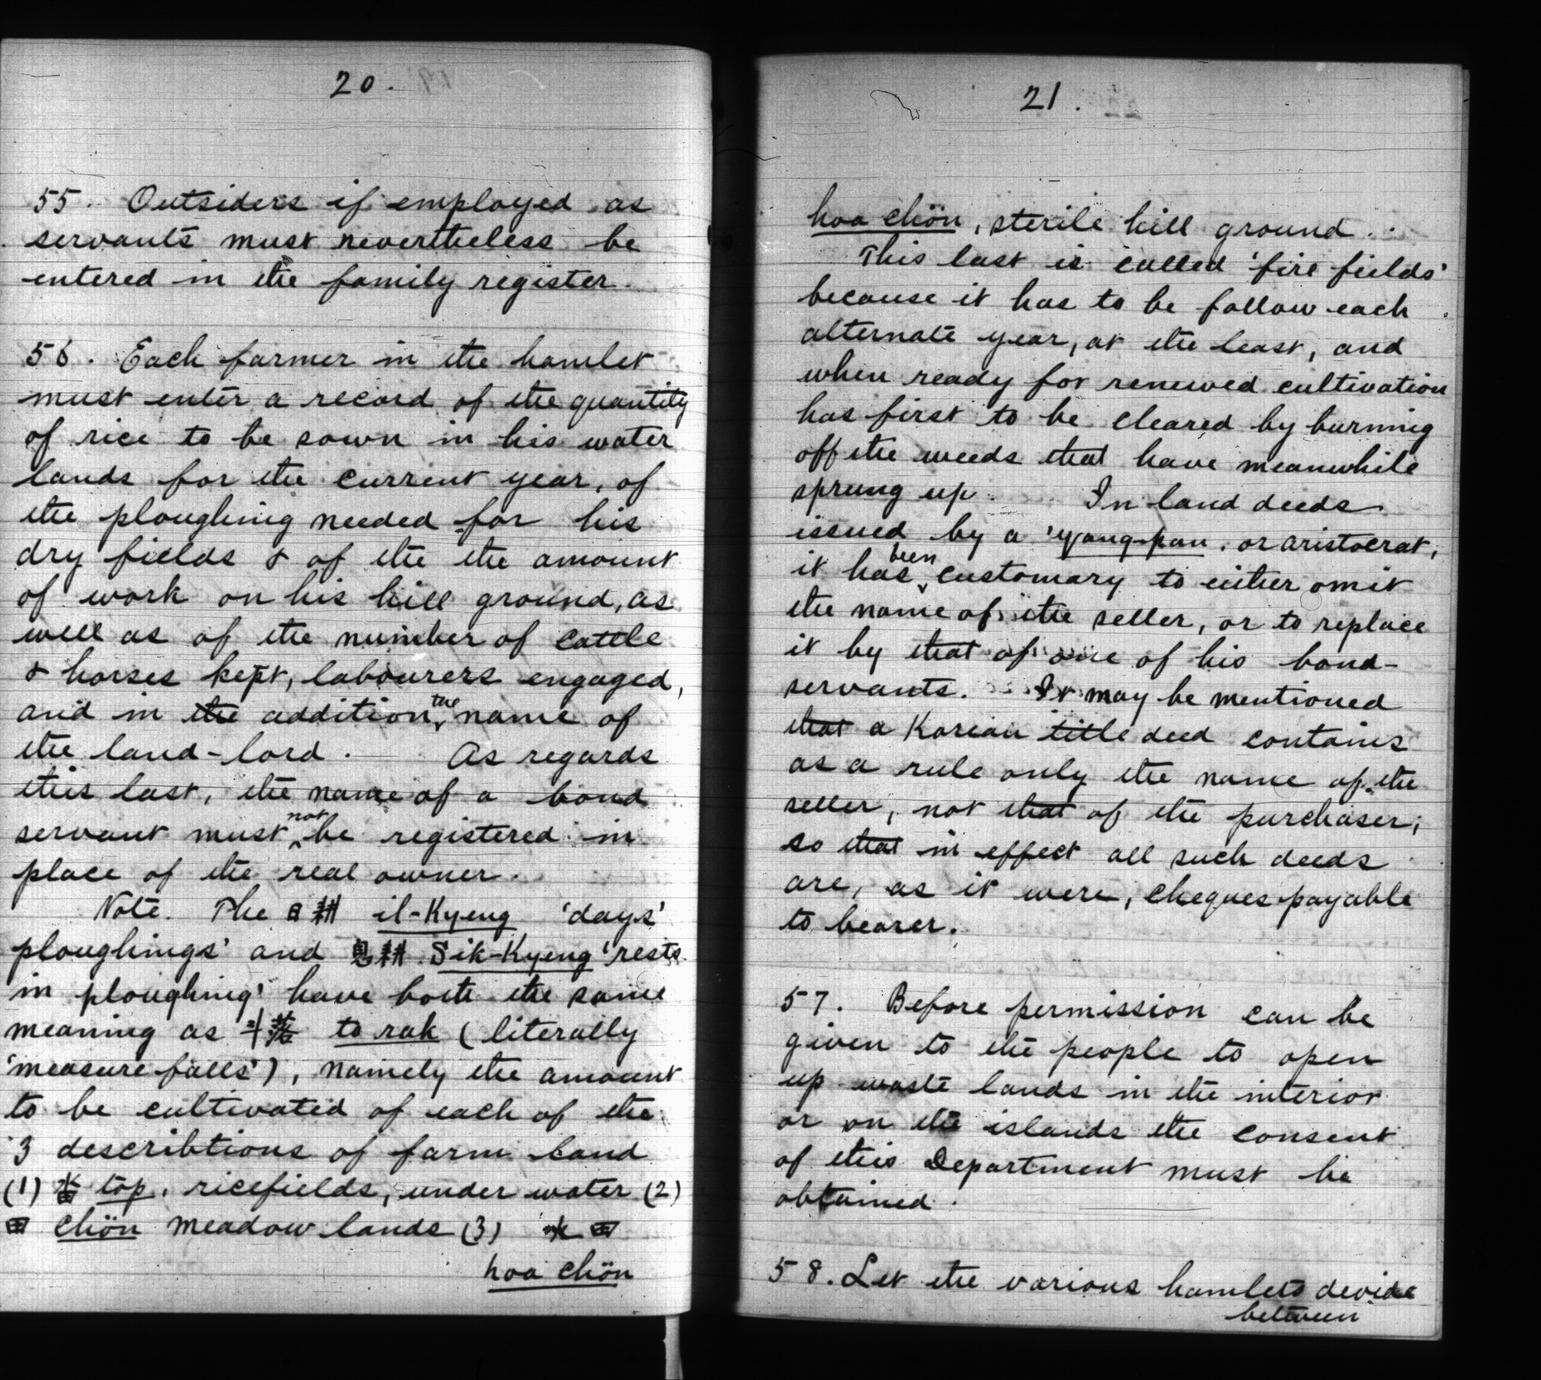 20.
55. Outsiders if employed as
servants must nevertheless be
entered in the family register.
56. Each farmer in the hamlet
must enter a record of the quantity
of rice to be sown in his water
lands for the current year, of
the ploughing needed for his
dry fields & of the the amount
of work on his hill ground, as
well as of the number of cattle
& horses kept, labourers engaged,
and in the addition, the name of
the land-lord. As regards
this last, the name of a bond
servant must not be registered in
place of the real owner.
Note. The 日耕 il-Kyeng 'days'
ploughings' and 息耕 Sik-Kyeng 'rests
in ploughing' have both the same
meaning as 斗落 to rak (literally
'measure falls'), namely the amount
to be cultivated of each of the
3 describtions of farm land
(1) 畓 top, ricefields, under water (2)
田 chön meadow lands (3) 火田
hoa chön
21.
hoa chön, sterile hill ground.
This last is called 'fire fields'
because it has to be fallow each
alternate year, at the least, and
when ready for renewed cultivation
has first to be cleared by burning
off the weeds that have meanwhile
sprung up. In land deeds
issued by a 'yang-pan, or aristocrat,
it has been customary to either omit
the name of the seller, or to replace
it by that of one of his bond-
servants. It may be mentioned
that a Korean title deed contains
as a rule only the name of the
seller, not that of the purchaser;
so that in effect all such deeds
are, as it were, cheques payable
to bearer.
57. Before permission can be
given to the people to open
up waste lands in the interior
or on the islands the consent
of this Department must be
obtained.
58. Let the various hamlets devide
between